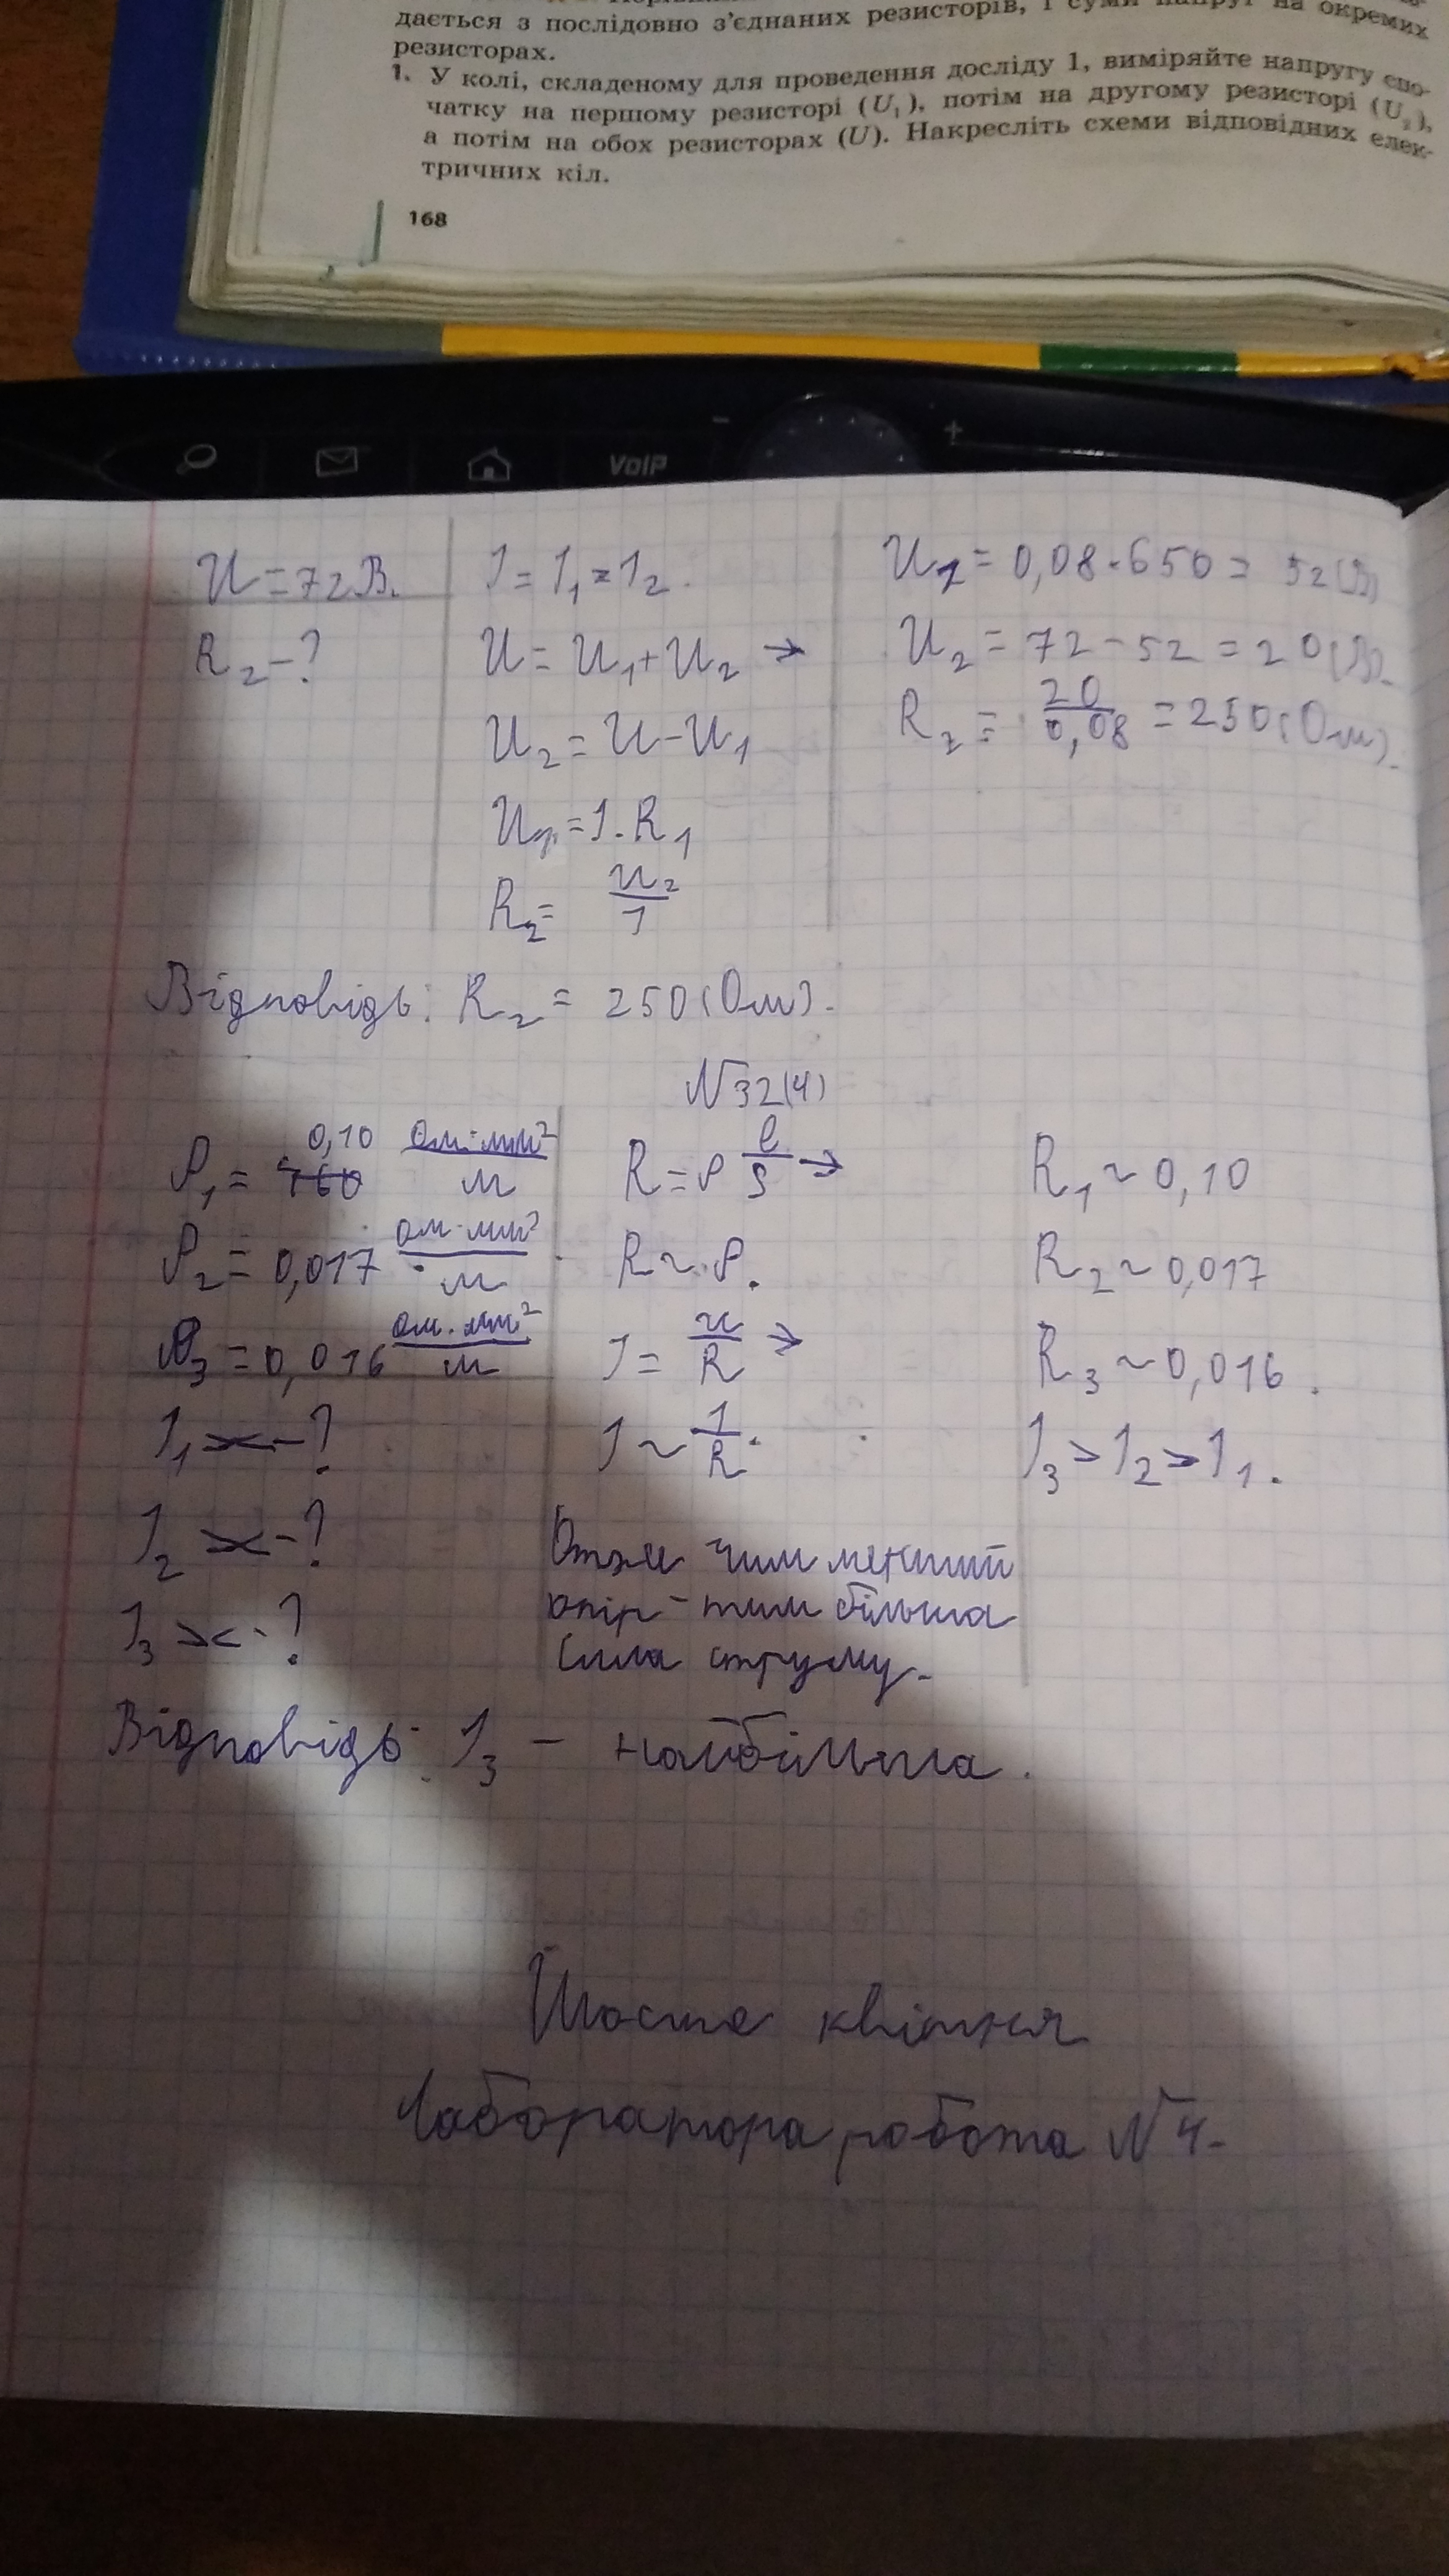 дається з послідовно з'єднаних резисторів, і суми напруг на окремих
резисторах.
1. У колі, складеному для проведення досліду 1, виміряйте напругу спо-
чатку на першому резисторі (U₁), потім на другому резисторі (U₂),
а потім на обох резисторах (U). Накресліть схеми відповідних елек-
тричних кіл.
168
VoIP
U = 72 В.
R₂ - ?
I = I₁ = I₂.
U = U₁ + U₂ →
U₂ = U - U₁
U₁ = I · R₁
R₂ = U₂/I
U₁ = 0,08 · 650 = 52 (В)
U₂ = 72 - 52 = 20 (В).
R₂ = 20/0,08 = 250 (Ом).
Відповідь: R₂ = 250 (Ом).
N 32(4)
ρ₁ = 0,10 Ом·мм²/м
ρ₂ = 0,017 Ом·мм²/м
ρ₃ = 0,016 Ом·мм²/м
I₁ - ?
I₂ - ?
I₃ - ?
R = ρ l/S →
R ~ ρ.
I = U/R →
I ~ 1/R.
Отже чим менший
опір - тим більша
сила струму.
R₁ ~ 0,10
R₂ ~ 0,017
R₃ ~ 0,016.
I₃ > I₂ > I₁.
Відповідь: I₃ - найбільша.
Шосте квітня
Лабораторна робота N 4.